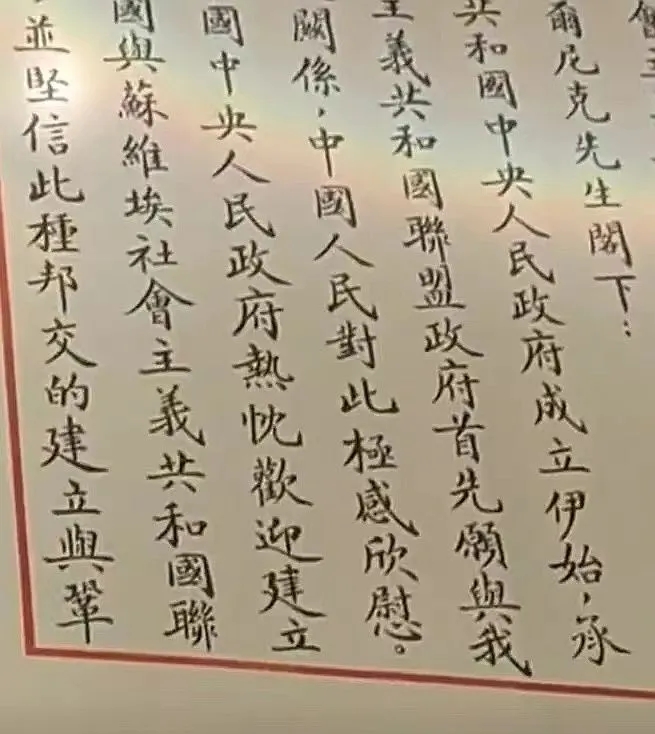 會主
爾尼克先生閣下：
共和國中央人民政府成立伊始，承
主義共和國聯盟政府首先願與我
關係，中國人民對此極感欣慰。
國中央人民政府熱忱歡迎建立
國與蘇維埃社會主義共和國聯
並坚信此種邦交的建立與鞏